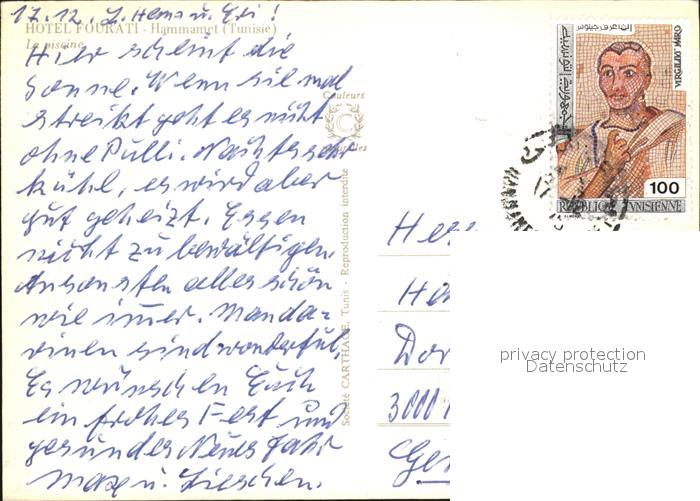 17.12. L. Hema u. Eri!
HOTEL FOURATI - Hammamet (Tunisie)
La piscine
Hier scheint die
Sonne. Wenn sie mal
streikt geht es nicht
ohne Pulli. Nachts sehr
kühl, es wird aber
gut geheizt. Essen
nicht zu bewältigen.
Ansonsten alles schön
wie immer. Manda=
rinen sind wonderful.
Es wünschen Euch
ein frohes Fest und
gesundes Neues Jahr
u. Lieschen.
Couleurs
Société CARTHAGE, Tunis - Reproduction interdite
VIRGILIO MARO
100
REPUBLIQUE TUNISIENNE
الجمهورية التونسية
He
Ha
Dor
3000
Ge
privacy protection
Datenschutz